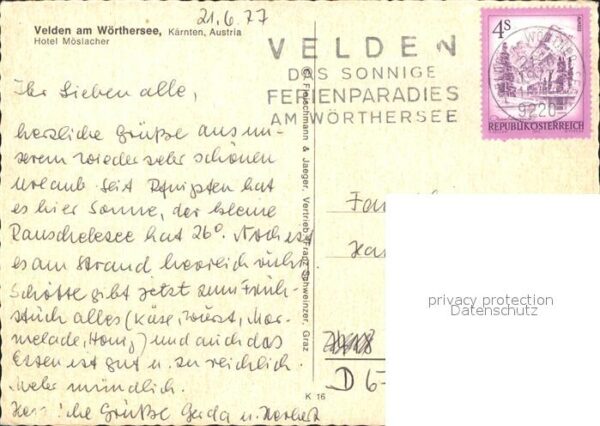 21.6.77
Velden am Wörthersee, Kärnten, Austria
Hotel Möslacher
VELDEN
DAS SONNIGE
FERIENPARADIES
AM WÖRTHERSEE
9220
4 S
REPUBLIK ÖSTERREICH
Ihr Lieben alle,
herzliche Grüße aus un-
serem wieder sehr schönen
Urlaub. Seit Pfingsten hat
es hier Sonne, der kleine
Rauschelesee hat 26°. Noch ist
es am Strand herrlich ruhig.
gibt jetzt zum Früh-
stück alles (Käse, Wurst, Mar-
melade, Honig) und auch das
Essen ist gut u. zu reichlich.
Mehr mündlich.
Herzliche Grüße Gerda u. Herbert
© Fleischmann & Jaeger, Vertrieb Franz Schweinzer, Graz
K 16
Fa
D 6-
privacy protection
Datenschutz